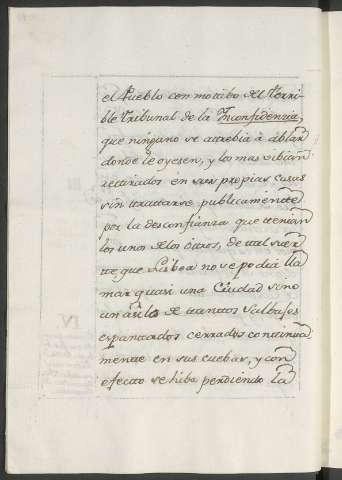 el Pueblo con motibo del Terri-
ble Tribunal de la Inconfidenzia,
que ninguno se atrebia à ablar
donde le oyesen, y los mas vibian
retirados en sus propias casas
sin tratarse publicamente
por la desconfianza que tenian
los unos delos otros, de tal suer
te que Lisboa no se podia lla
mar quasi una Ciudad sino
un asilo de tantos Salbajes
espantados cerrados continua
mente en sus cuebas, y con
efecto se hiba perdiendo la